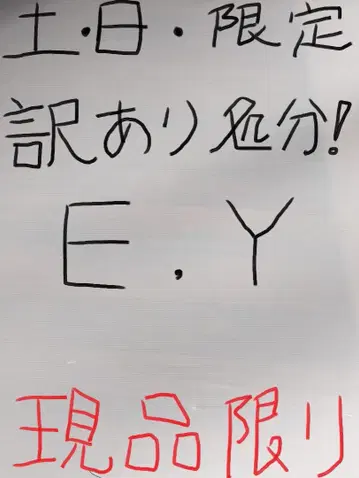 土・日・限定
訳あり処分!
E.Y
現品限り